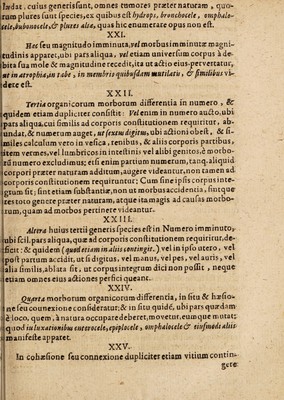 lædat. cuius generis sunt, omnes tumores præter naturam, quo-
rum plures sunt species, ex quibus est hydrops, bronchocele, omphalo-
cele, bubonocele, & plures aliæ, quas hic enumerare opus non est.
XXI.
Hæc seu magnitudo imminuta, vel morbus imminutæ magni-
tudinis apparet, ubi pars aliqua, vel etiam universum corpus à de-
bita sua mole & magnitudine recedit, ita ut actio eius pervertatur,
ut in atrophia, in tabe, in membris quibusdam mutilatis, & similibus vi-
dere est.
XXII.
Tertia organicorum morborum differentia in numero, &
quidem etiam duplicitec consistit: Vel enim in numero aucto, ubi
pars aliqua, cui similis ad corporis constitutionem requiritur, ab-
undat, & numerum auget, ut sextus digitus, ubi actioni obest, & si-
miles calculum vero in vesica, renibus, & aliis corporis partibus,
item vermes, vel lumbricos in intestinis vel alibi genitos, è morbo-
rū numero excludimus; etsi enim partium numerum, tanq. aliquid
corpori præter naturam additum, augere videantur, non tamen ad
corporis constitutionem requiruntur; Cum sine ipsis corpus inte-
grum sit; sintetiam substantiæ, non ut morbus accidentia, sintque
res toto genere præter naturam, atque ita magis ad causas morbo-
rum, quam ad morbos pertinere videantur.
XXIII.
Altera huius tertii generis species est in Numero imminuto,
ubi scil. pars aliqua, quæ ad corporis constitutionem requiritur, de-
ficit: & quidem (quod etiam in aliis contingit.) vel in ipso utero, vel
post partum accidit, ut si digitus, vel manus, vel pes, vel auris, vel
alia similis, ablata sit, ut corpus integrum dici non possit, neque
etiam omnes eius actiones perfici queant.
XXIV.
Quarta morborum organicorum differentia, in situ & hæsio-
ne seu connexione consideratur; & in situ quidē, ubi pars quædam
è loco, quem, à natura occupare deberet, movetur, eumque mutat:
quod in luxationibus enterocele, epiplocele, omphalocele & eiusmodi aliis
manifeste apparet.
XXV.
In cohæsione seu connexione dupliciter etiam vitium contin-
gere